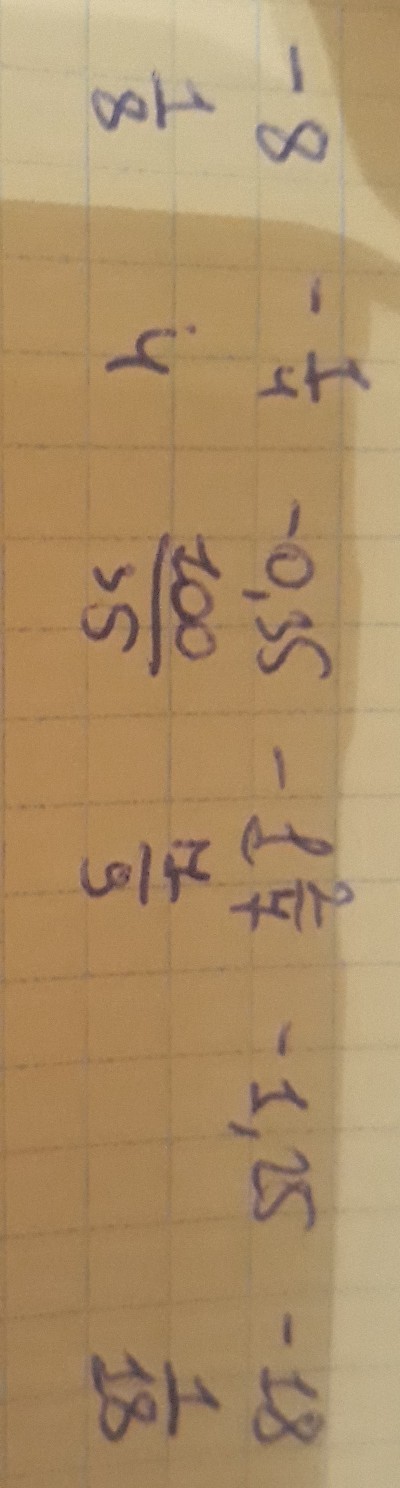 -8 -1/4 -0,35 -1 2/7 -1,25 -18
1/8 4 100/35 7/9 1/18